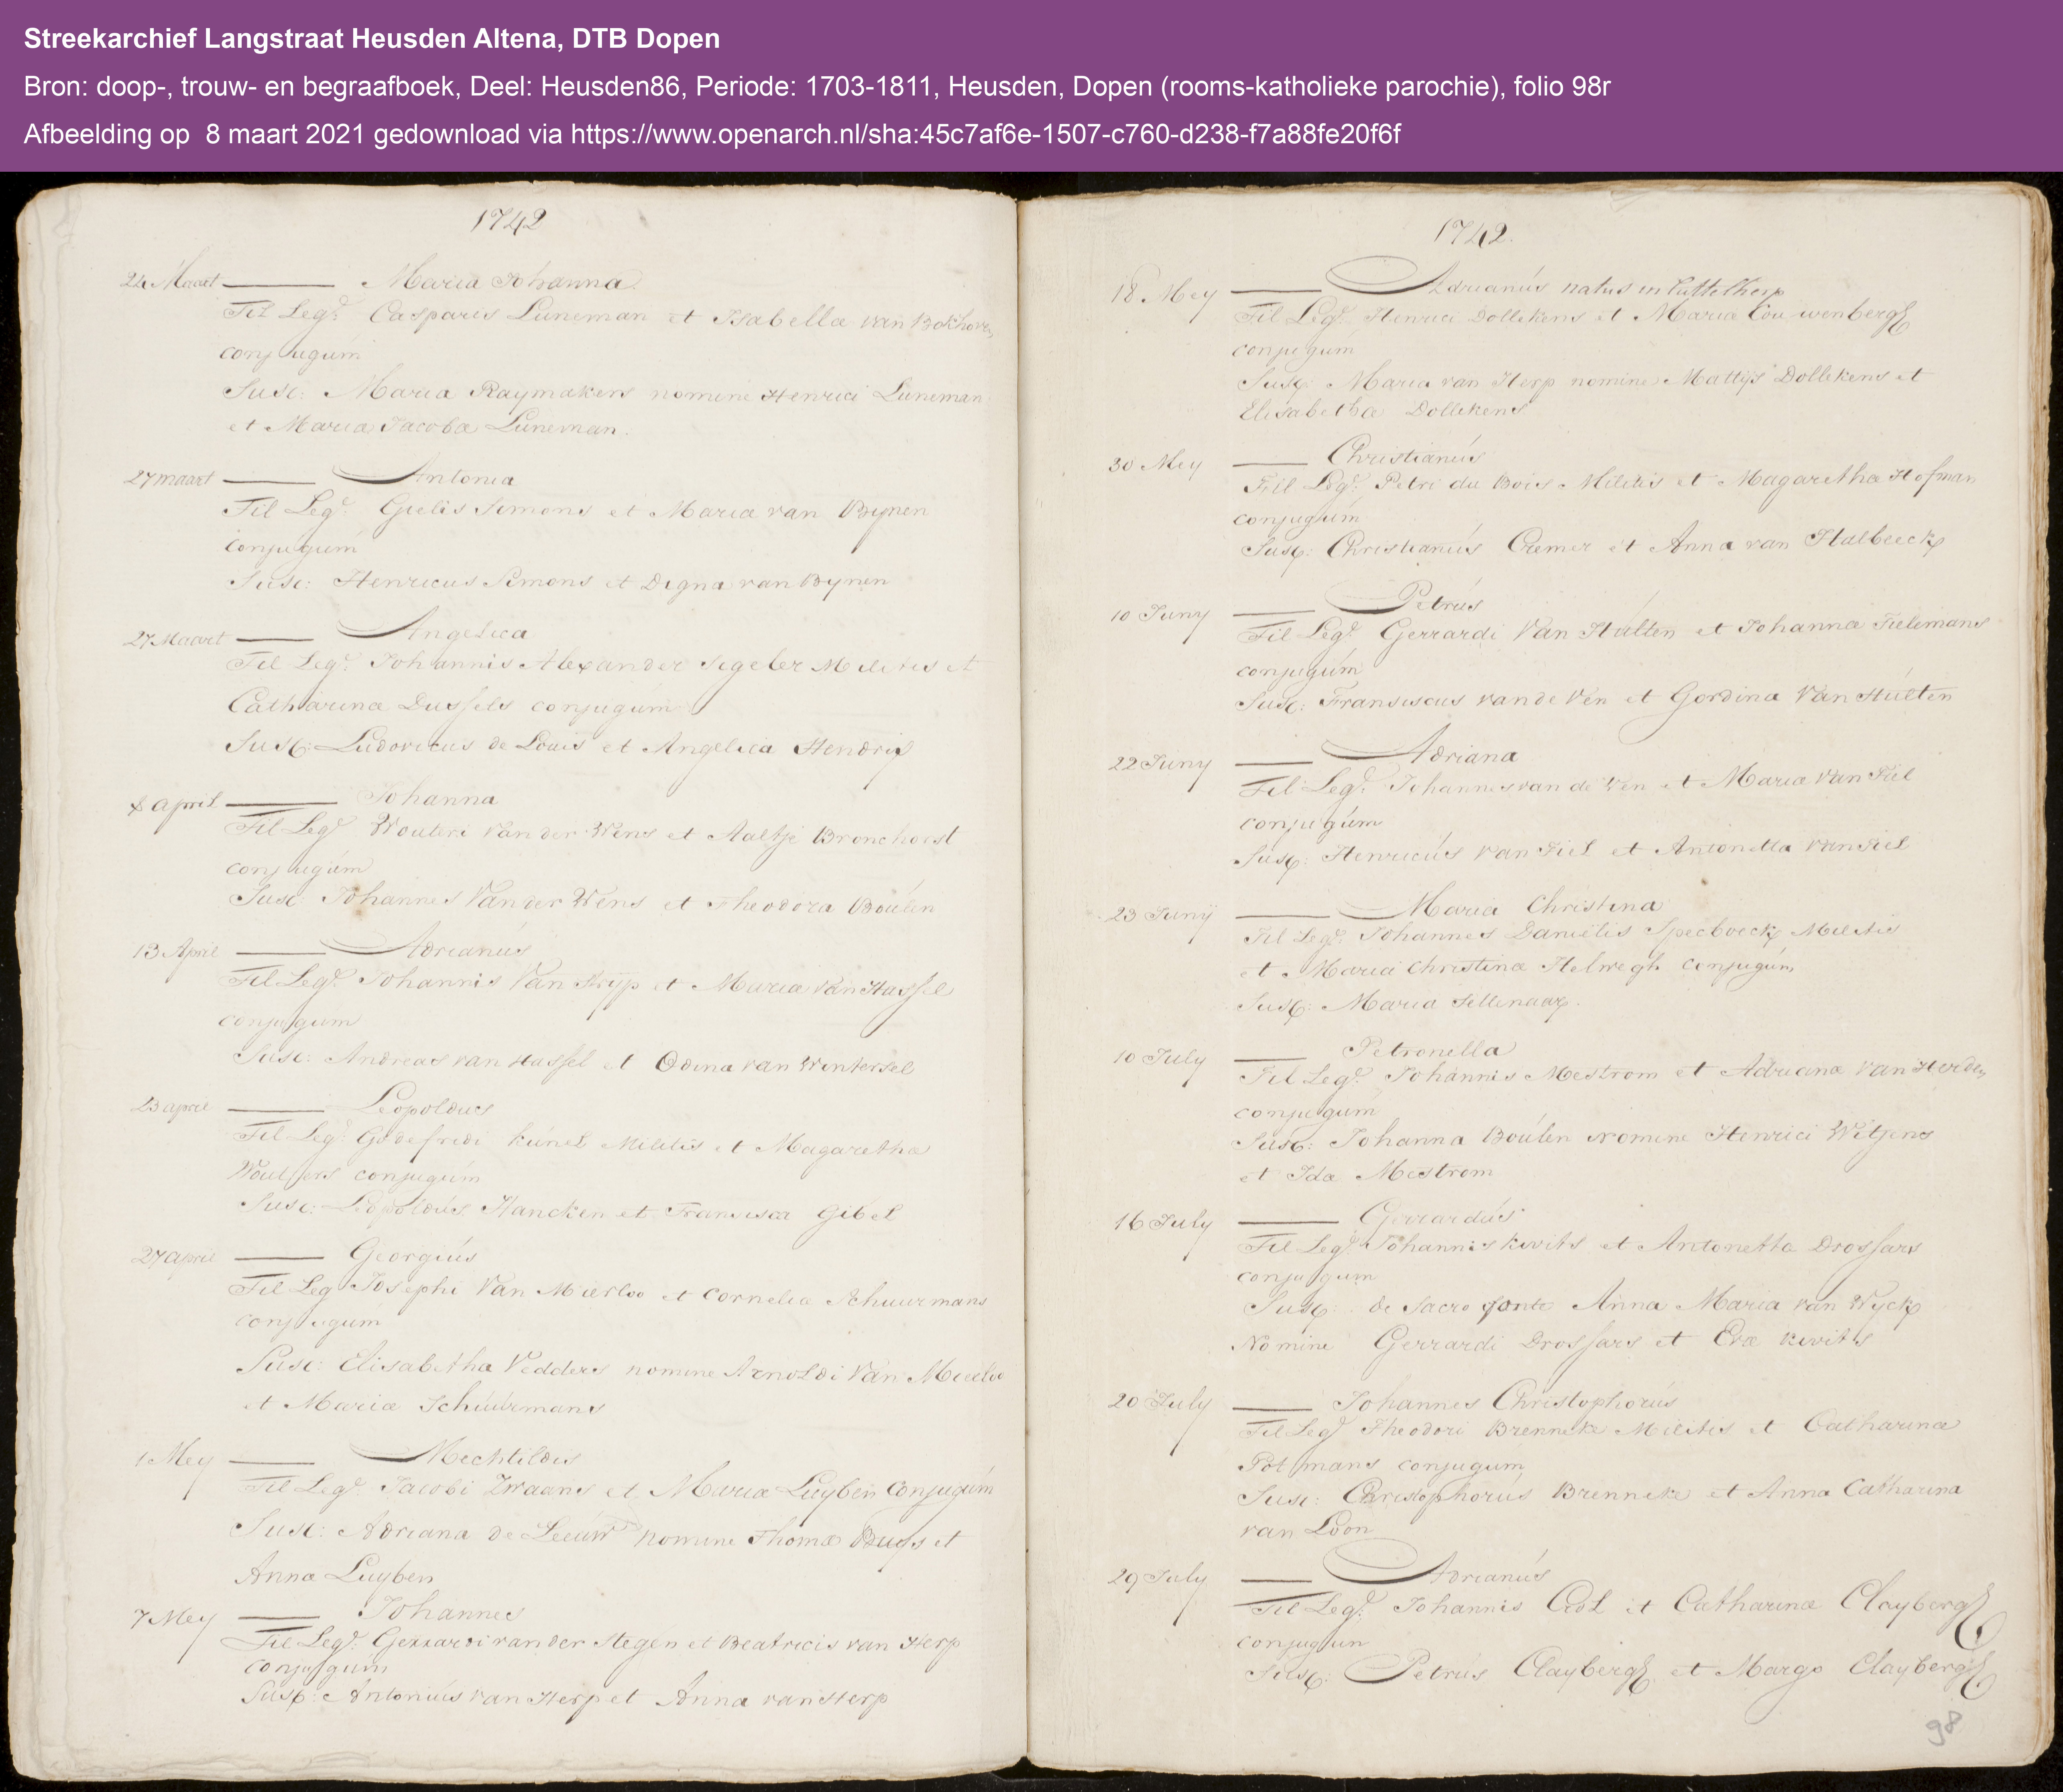 Streekarchief Langstraat Heusden Altena, DTB Dopen
Bron: doop-, trouw- en begraafboek, Deel: Heusden86, Periode: 1703-1811, Heusden, Dopen (rooms-katholieke parochie), folio 98r
Afbeelding op 8 maart 2021 gedownload via https://www.openarch.nl/sha:45c7af6e-1507-c760-d238-f7a88fe20f6f
1742
24 Maart Maria Johanna
Fil Leg: Casparis Luneman et Isabellæ van Bokhoven
conjugúm
Susc: Maria Raymakers nomine Henrici Luneman
et Maria Jacoba Luneman.
27 maart Antonia
Fil Leg: Gielis Simons et Maria van Bynen
conjugúm
Susc: Henricus Simons et Digna van Bynen
27 Maart Angelica
Fil Leg: Johannis Alexander Segeler Militis et
Catharinæ Dussels conjugúm
Susc: Ludovicus de Louis et Angelica Hendrix
8 april Johanna
Fil Leg: Wouteri Van der Wens et Aaltje Bronchorst
conjugúm
Susc Johannes Van der Wens et Theodora Boúlen
13 April Adrianús
Fil Leg: Johannis Van Stryp et Maria van Hassel
conjugum
Susc: Andreas van Hassel et Odina van Wintersel
23 april Leopoldus
Fil Leg: Godefridi Kúnel Militis et Magaretha
Woulters conjugúm
Susc: Leopoldús Hancken et Fransisca Gibel
27 april Georgiús
Fil Leg Josephi Van Mierloo et Corneliæ Schuurmans
conjugúm
Susc: Elisabetha Vedders nomine Arnoldi Van Mierloo
et Mariæ Schúúrmans
1 Mey Mechtildis
Fil Leg: Jacobi Zwaans et Mariæ Luyben Conjugúm
Susc: Adriana de Leeúw nomine Thomæ Buys et
Annæ Luyben
7 Mey Johannes
Fil Leg: Gerrardi van der Stegen et Beatricis van Herp
conjugum
Susc: Antoniús van Herp et Anna van Herp
1742.
18 Mey Adrianús natus in Luttelherp
Fil Leg: Henrici Dollekens et Mariæ Couwenbergh
conjugum
Susc: Maria van Herp nomine Mattijs Dollekens et
Elisabetha Dollekens
30 Mey Christianús
Fill Leg: Petri du Bois Militis et Magarethæ Hofman
conjugúm
Susc: Christianús Cremer et Anna van Halbeeck
10 Juny Petrús
Fil Leg: Gerrardi Van Húlten et Johannæ Tielemans
conjugúm
Susc: Fransiscus van de Ven et Gordina Van Húlten
22 Juny Adriana
Fil Leg: Johannes van de Ven et Mariæ Van Tiel
conjugúm
Susc: Henricús Van Tiel et Antonetta Van Tiel
23 Juny Maria Christina
Fil Leg: Johannes Daniëlis Specboeck Militis
et Maria Christinæ Helwegh conjugúm
Susc: Maria
10 July Petronella
Fil Leg: Johannis Mestrom et Adrianæ Van Herden
conjugúm
Susc: Johanna Boúlen Nomine Henrici Witjens
et Idæ Mestrom
16 July Gerrardús
Fil Leg: Johannis Kivits et Antonetta Drossars
conjugum
Susc: de Sacro fonte Anna Maria van Wyck
Nomine Gerrardi Drossars et Evæ Kivits
20 July Johannes Christophorús
Fil Leg: Theodori Brenneke Militis et Catharinæ
Potmans conjugum
Susc: Christophorús Brenneke et Anna Catharina
van Loon
29 July Adrianús
Fil Leg: Johannis Crol et Catharinæ Claybergh
conjugun
Susc: Petrús Claybergh et Margo Claybergh
98